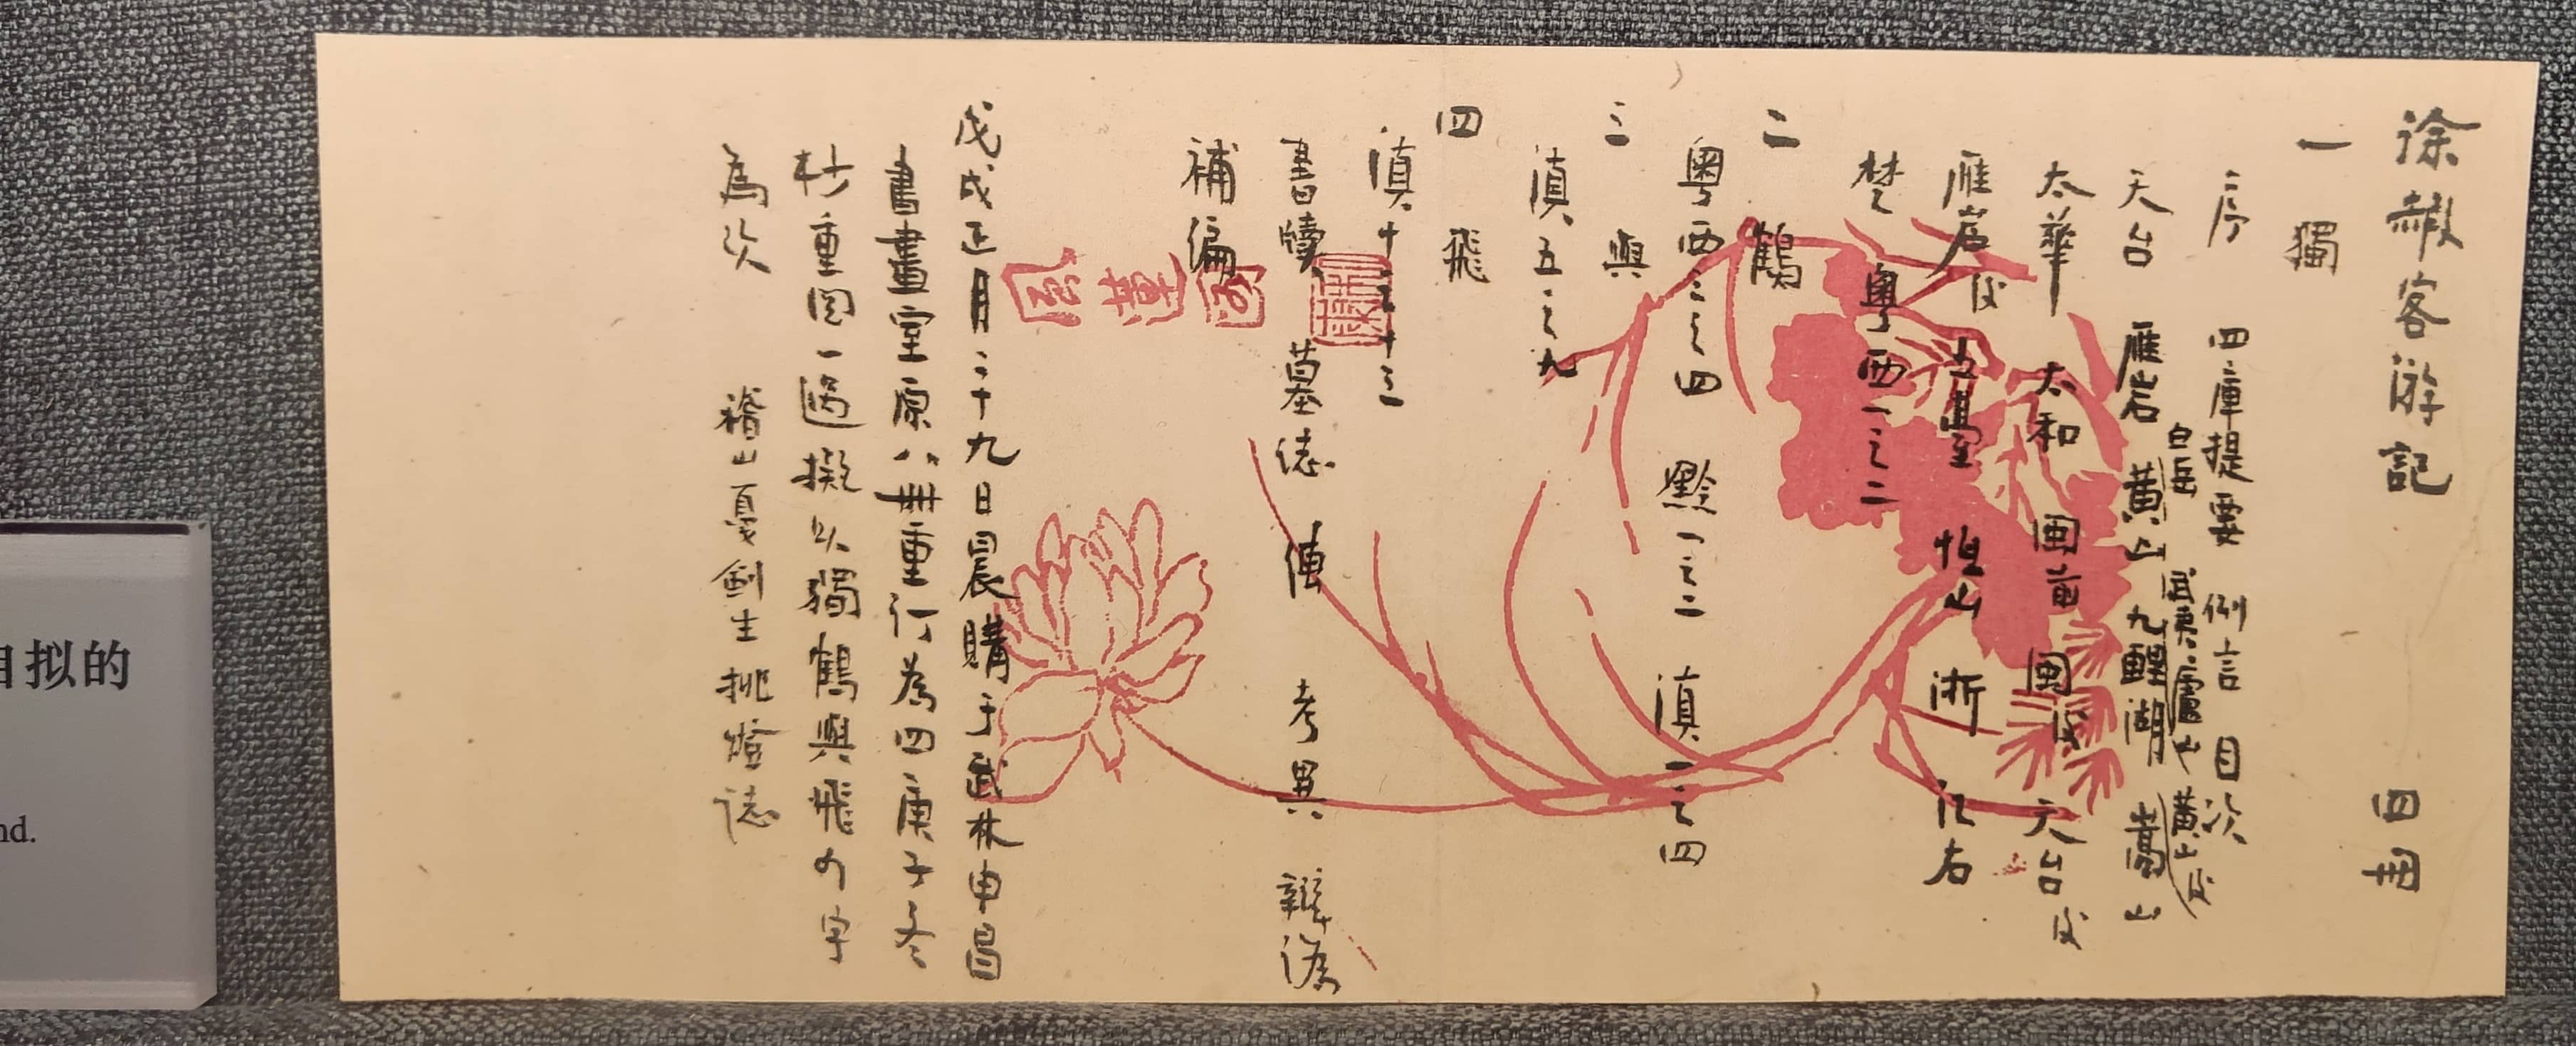 徐赮客游記 四冊
一獨
序 四庫提要 例言 目次
白岳 武夷 廬山 黃山後
天台 雁岩 黃山 九鯉湖 嵩山
太華 太和 閩前 閩後 天台後
雁宕後 五臺 恒山 浙 江右
楚 粵西一之二
二鶴
粵西三之四 黔一之二 滇一之四
三與
滇五之九
四飛
滇十之十三
書牘 墓誌 傳 考異 辯譌
補編
戊戌正月二十九日晨購于武林申昌
書畫室原八冊重訂為四庚子冬
杪重閱一過擬以獨鶴與飛四字
為次 稽山戛劍生挑燈誌
自拟的
nd.